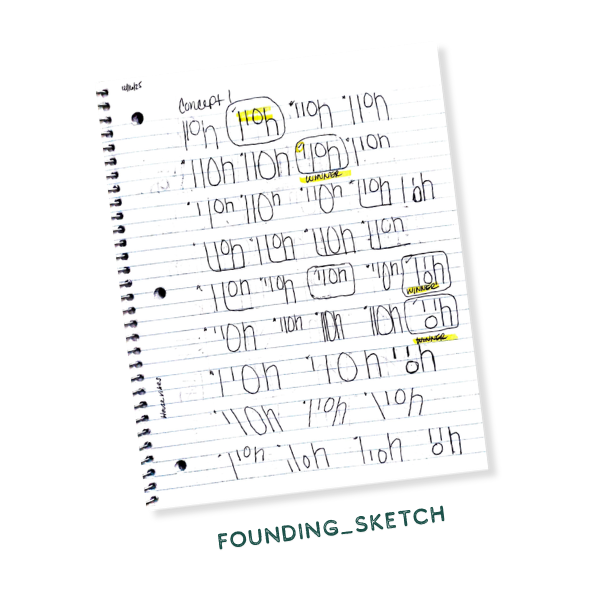 Concept 1
110h 110h '110h '110h
'110h '110h '110h '110h
WINNER
'110h '110h '110h '110h 110h
110h '110h '110h '110h
'110h '110h '110h '110h 110h
WINNER
'110h '110h 110h '110h 110h
WINNER
'110h '110h 110h
'110h '110h '110h
'110h '110h '110h 110h
FOUNDING_SKETCH